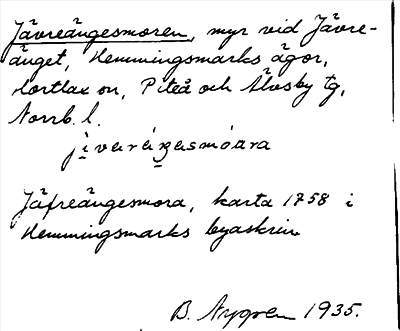 Jävreängesmoren, myr vid Jävre-
änget, Hemmingsmarks ägor,
Hortlax sn, Piteå och Älvsby tg,
Norrb. l.
Jäfreängesmora, karta 1758 i
Hemmingsmarks byaskrin
B. Nygren 1935.